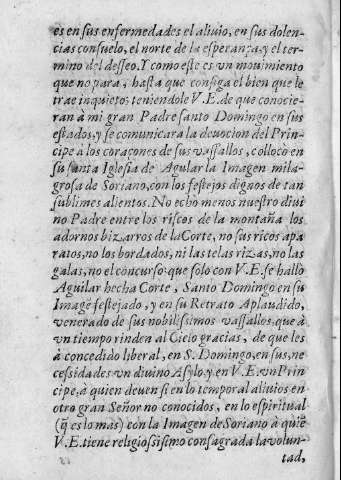 es en sus enfermedades el aliuio, en sus dolen-
cias consuelo, el norte de la esperança, y el ter-
mino del desseo. Y como este es vn mouimiento
que no para, hasta que consiga el bien que le
trae inquieto; teniendole V.E. de que conocie-
ran à mi gran Padre santo Domingo en sus
estados, y se comunicara la deuocion del Prin-
cipe à los coraçones de sus vassallos, colloco en
su santa Iglesia de Agular la Imagen mila-
grosa de Soriano, con los festejos dignos de tan
sublimes alientos. No echò menos nuestro diui
no Padre entre los riscos de la montaña los
adornos bizarros de la Corte, no sus ricos apa
ratos, no los bordados, ni las telas rizas, no las
galas, no el concurso: que solo con V.E. se hallò
Aguilar hecha Corte, Santo Domingo en su
Imagē festejado, y en su Retrato Aplaudido,
venerado de sus nobilissimos vassallos, que à
vn tiempo rinden al Cielo gracias, de que les
à concedido liberal, en S. Domingo, en sus, ne
cessidades vn diuino Asylo, y en V.E. vn Prin
cipe, à quien deuen si en lo temporal aliuios en
otro gran Señor no conocidos, en lo espiritual
(q̃ es lo mas) con la Imagen de Soriano à quiē
V.E. tiene religiossissimo consagrada la volun-
tad,